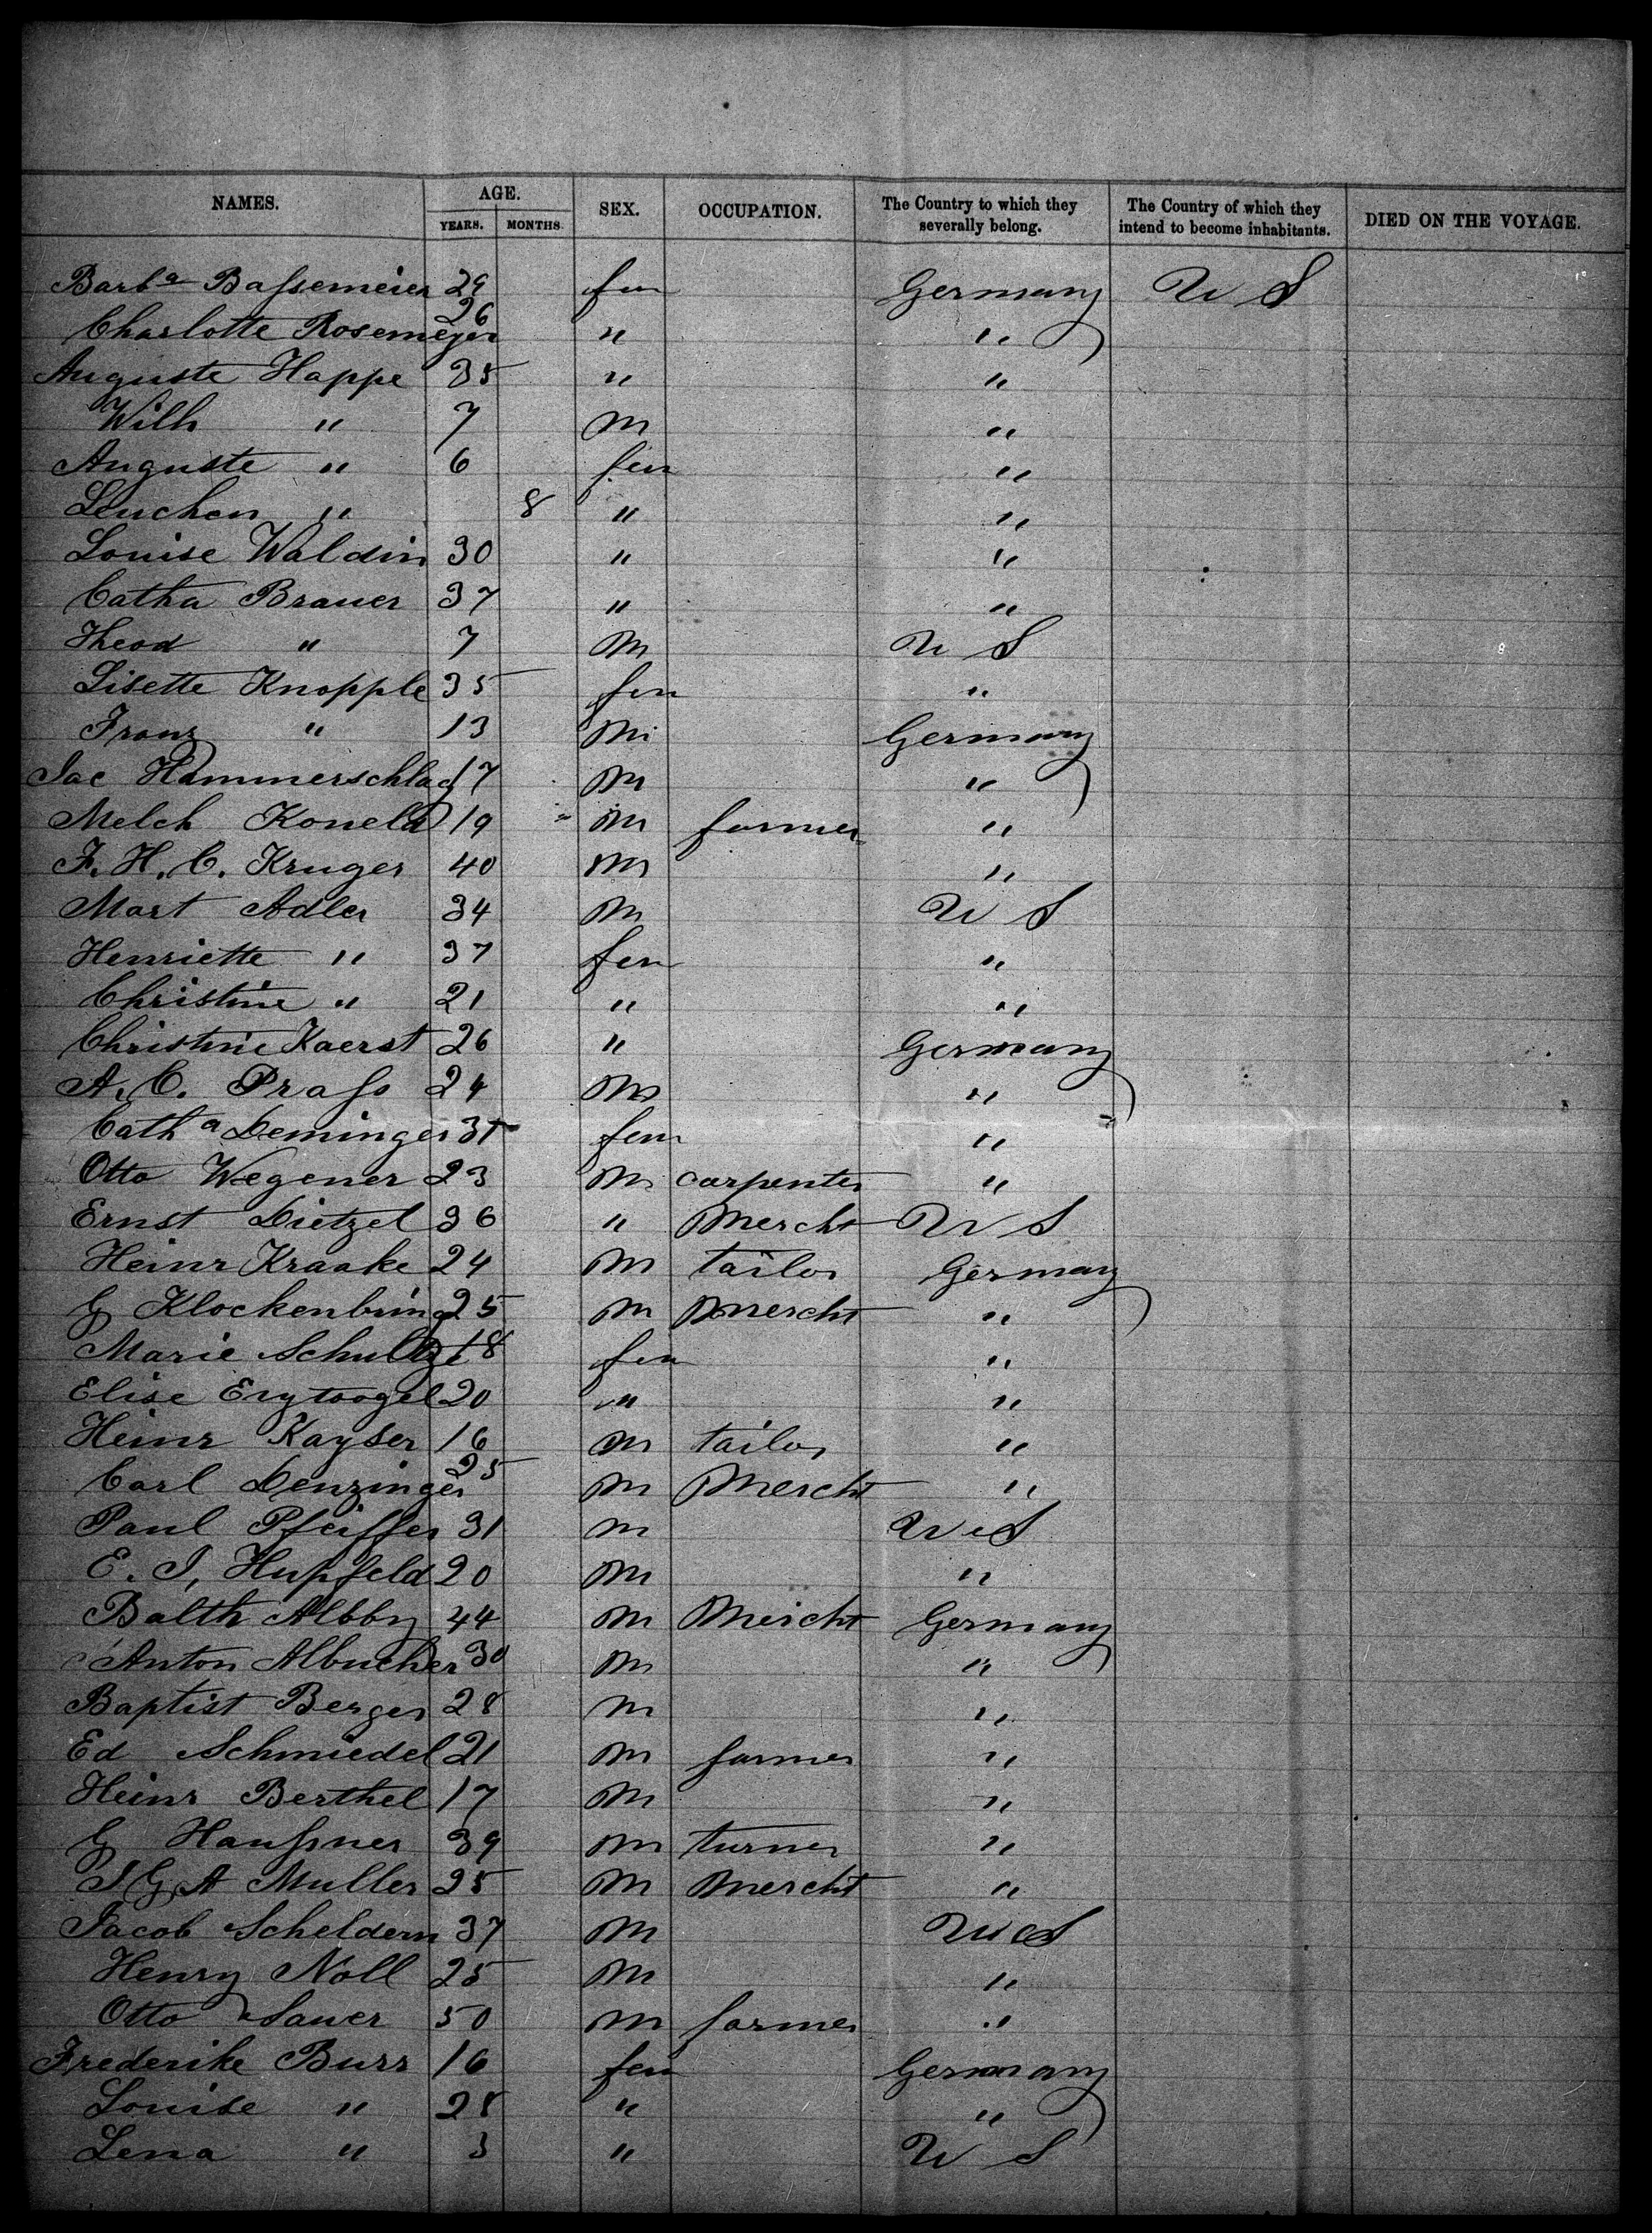 NAMES. AGE. SEX. OCCUPATION. The Country to which they severally belong. The Country of which they intend to become inhabitants. DIED ON THE VOYAGE.
YEARS. MONTHS
Barba Baſsemeier 29 fem Germany U S
Charlotte Rosemeyer 26 " "
Auguste Happe 35 " "
Wilh " 7 m "
Auguste " 6 fem "
Lenchen " 8 " "
Louise Waldin 30 " "
Catha Brauer 37 " "
Theod " 7 m U S
Lisette Knopple 35 fem "
Franz " 13 m Germany
Jac Hammerschlag 17 m "
Melch Koneld 19 m farmer "
F. H. C. Kruger 40 m "
Mart Adler 34 m U S
Henriette " 37 fem "
Christine " 21 " "
Christine Kaerst 26 " Germany
A. C. Praſs 24 m "
Catha Deminger 31 fem "
Otto Wegener 23 m carpenter "
Ernst Dietzel 36 " Mercht U S
Heinr Kraake 24 m tailor Germany
G Klockenbring 25 m Mercht "
Marie Schultze 18 fem "
Elise 20 " "
Heinr Kayser 16 m tailor "
Carl Denzinger 25 m Mercht "
Paul Pfeiffer 31 m U S
E. J. Hupfeld 20 m "
Balth Albby 44 m Mercht Germany
Anton Albucher 30 m "
Baptist Berger 28 m "
Ed Schmiedel 21 m farmer "
Heinr Berthel 17 m "
G Hauſsner 39 m turner "
J G A Muller 25 m Mercht "
Jacob Scheldern 37 m U S
Henry Noll 25 m "
Otto Sauer 50 m farmer "
Frederike Burr 16 fem Germany
Louise " 28 " "
Lena " 3 " U S